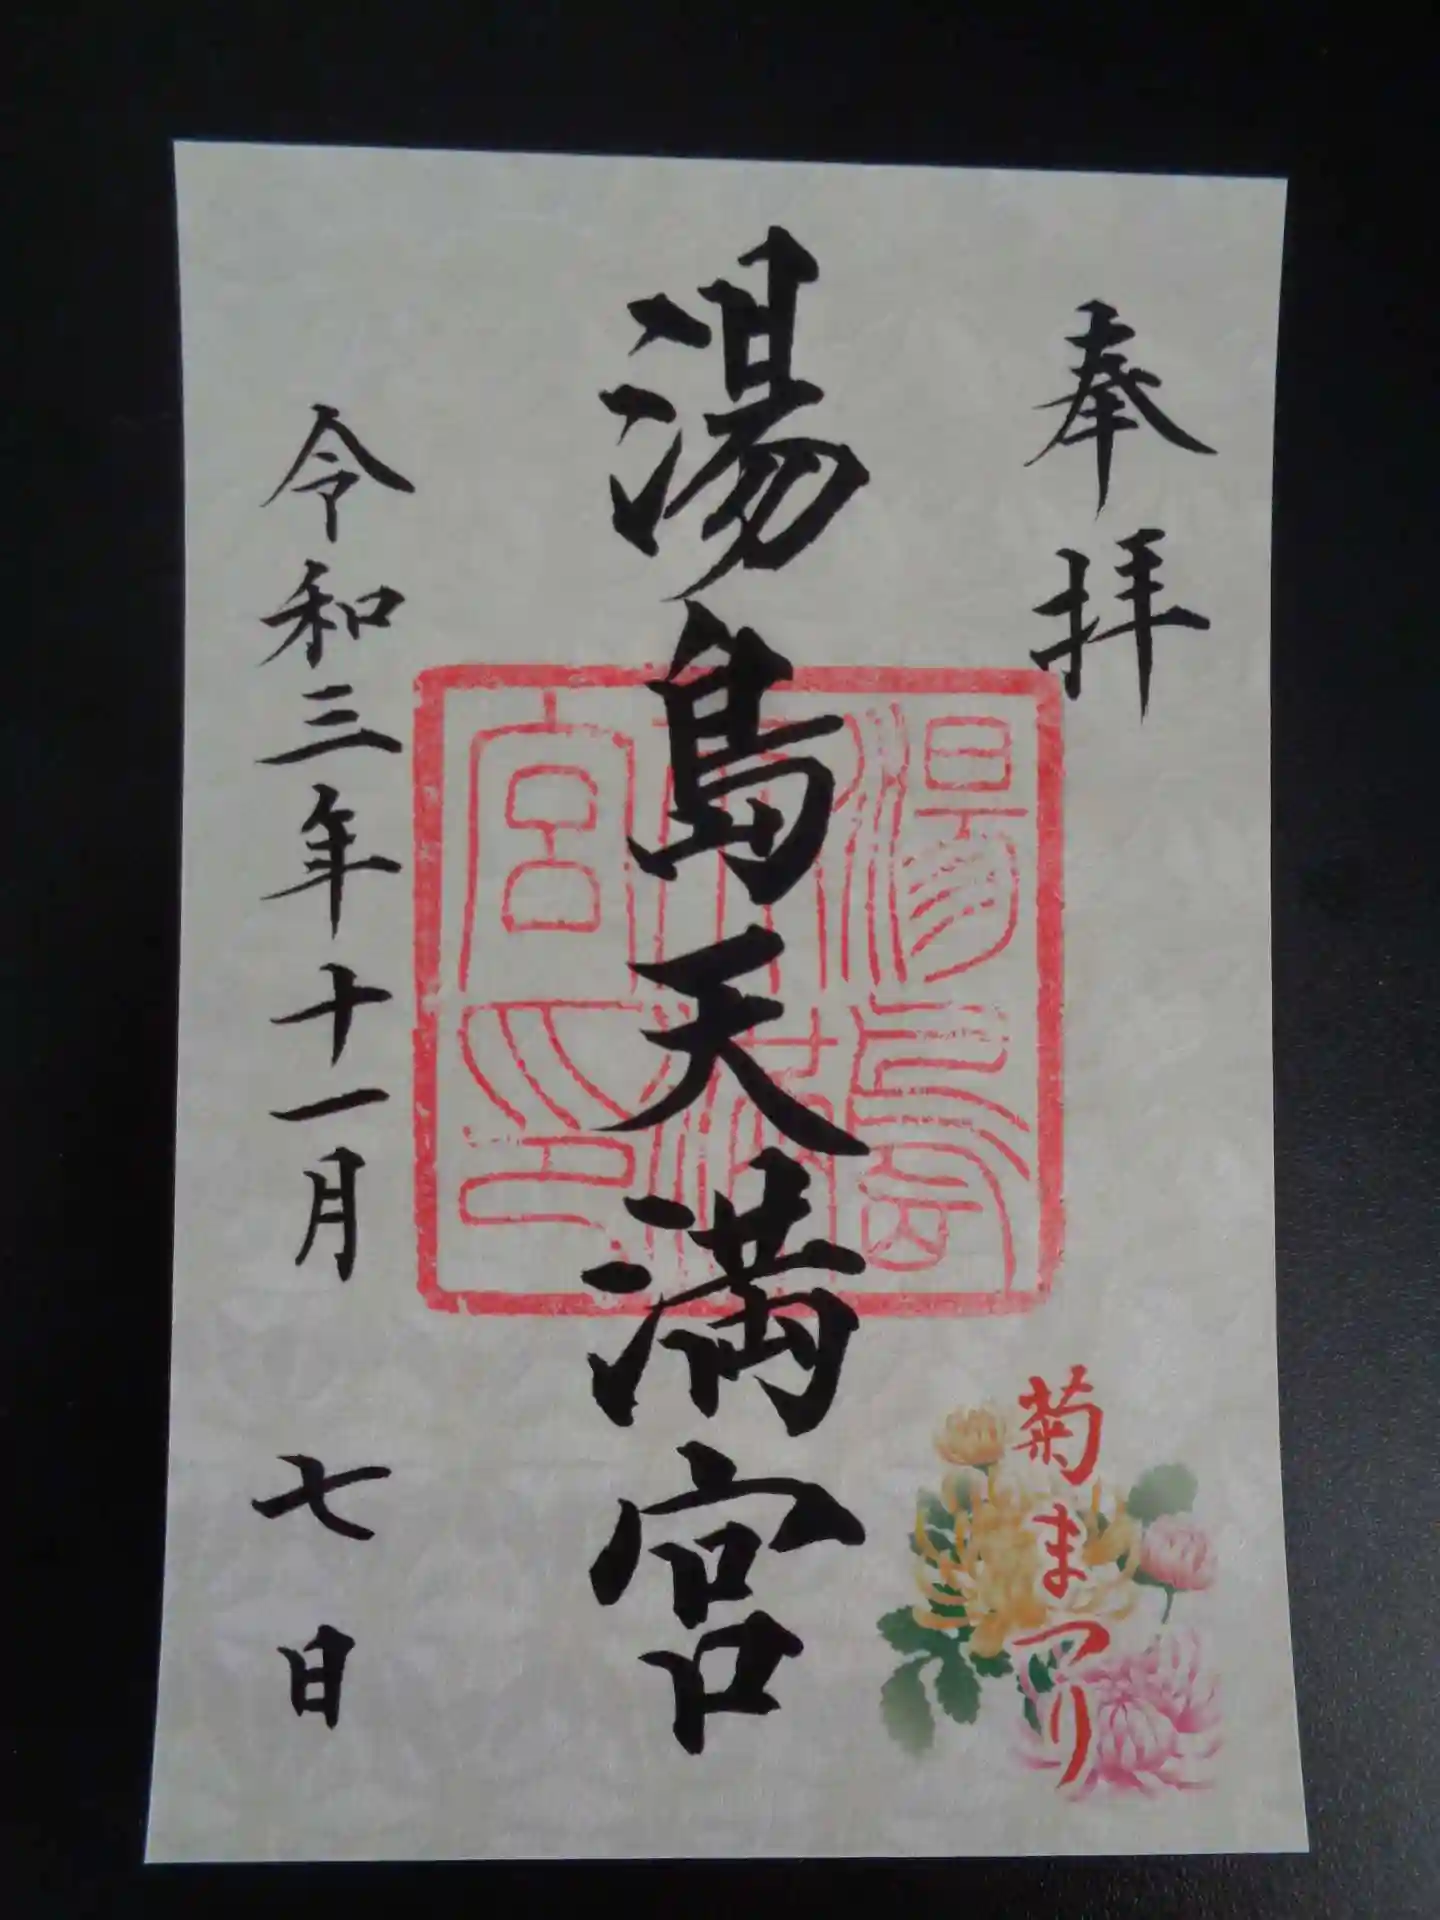 奉拝
菊まつり
湯島天満宮
湯島天満宮印
令和三年十一月七日